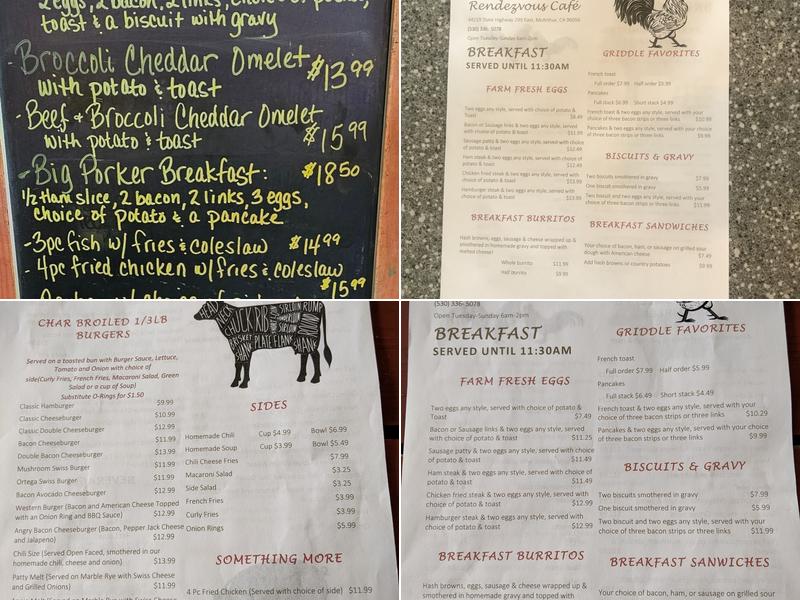 2 eggs, 2 bacon, 2 links, choice of potato,
toast & a biscuit with gravy
- Broccoli Cheddar Omelet
with potato & toast $13.99
- Beef & Broccoli Cheddar Omelet
with potato & toast $15.99
- Big Porker Breakfast: $18.50
1/2 Ham slice, 2 bacon, 2 links, 3 eggs,
choice of potato & a pancake
- 3pc fish w/ fries & coleslaw $14.99
- 4pc fried chicken w/ fries & coleslaw
$15.99
Rendezvous Café
44219 State Highway 299 East, McArthur, CA 96056
(530) 336-5078
Open Tuesday-Sunday 6am-2pm
BREAKFAST
SERVED UNTIL 11:30AM
FARM FRESH EGGS
Two eggs any style, served with choice of potato &
Toast $8.49
Bacon or Sausage links & two eggs any style, served
with choice of potato & toast $11.99
Sausage patty & two eggs any style, served with choice
of potato & toast $12.49
Ham steak & two eggs any style, served with choice of
potato & toast $12.49
Chicken fried steak & two eggs any style, served with
choice of potato & toast $13.99
Hamburger steak & two eggs any style, served with
choice of potato & toast $13.99
BREAKFAST BURRITOS
Hash browns, eggs, sausage & cheese wrapped up &
smothered in homemade gravy and topped with
melted cheese!
Whole burrito $11.99
Half burrito $9.99
GRIDDLE FAVORITES
French toast
Full order $7.99 Half order $5.99
Pancakes
Full stack $6.99 Short stack $4.99
French toast & two eggs any style, served with your
choice of three bacon strips or three links $10.99
Pancakes & two eggs any style, served with your
choice of three bacon strips or three links $9.99
BISCUITS & GRAVY
Two biscuits smothered in gravy $7.99
One biscuit smothered in gravy $5.99
Two biscuit and two eggs any style, served with your
choice of three bacon strips or three links $11.99
BREAKFAST SANDWICHES
Your choice of bacon, ham, or sausage on grilled sour
dough with American cheese $7.49
Add fresh browns or country potatoes $9.99
CHAR BROILED 1/3LB
BURGERS
Served on a toasted bun with Burger Sauce, Lettuce,
Tomato and Onion with choice of
side(Curly Fries, French Fries, Macaroni Salad, Green
Salad or a cup of Soup)
Substitute O-Rings for $1.50
Classic Hamburger $9.99
Classic Cheeseburger $10.99
Classic Double Cheeseburger $12.99
Bacon Cheeseburger $11.99
Double Bacon Cheeseburger $13.99
Mushroom Swiss Burger $11.99
Ortega Swiss Burger $11.99
Bacon Avocado Cheeseburger $12.99
Western Burger (Bacon and American Cheese Topped
with an Onion Ring and BBQ Sauce) $12.99
Angry Bacon Cheeseburger (Bacon, Pepper Jack Cheese
and Jalapeno) $12.99
Chili Size (Served Open Faced, smothered in our
homemade chili, cheese and onion) $13.99
Patty Melt (Served on Marble Rye with Swiss Cheese
and Grilled Onions) $11.99
CHUCK RIB
SIRLOIN RUMP
PLATE FLANK SHANK
SIDES
Homemade Chili Cup $4.99 Bowl $6.99
Homemade Soup Cup $3.99 Bowl $5.49
Chili Cheese Fries $7.99
Macaroni Salad $3.25
Side Salad $3.25
French Fries $3.99
Curly Fries $3.99
Onion Rings $5.99
SOMETHING MORE
4 Pc Fried Chicken (Served with choice of side) $11.99
(530) 336-5078
Open Tuesday-Sunday 6am-2pm
BREAKFAST
SERVED UNTIL 11:30AM
FARM FRESH EGGS
Two eggs any style, served with choice of potato &
Toast $7.49
Bacon or Sausage links & two eggs any style, served
with choice of potato & toast $11.25
Sausage patty & two eggs any style, served with choice
of potato & toast $11.49
Ham steak & two eggs any style, served with choice of
potato & toast $11.49
Chicken fried steak & two eggs any style, served with
choice of potato & toast $12.99
Hamburger steak & two eggs any style, served with
choice of potato & toast $12.99
BREAKFAST BURRITOS
Hash browns, eggs, sausage & cheese wrapped up &
smothered in homemade gravy and topped with
GRIDDLE FAVORITES
French toast
Full order $7.99 Half order $5.99
Pancakes
Full stack $6.49 Short stack $4.49
French toast & two eggs any style, served with your
choice of three bacon strips or three links $10.29
Pancakes & two eggs any style, served with your
choice of three bacon strips or three links $9.99
BISCUITS & GRAVY
Two biscuits smothered in gravy $7.99
One biscuit smothered in gravy $5.99
Two biscuit and two eggs any style, served with your
choice of three bacon strips or three links $11.99
BREAKFAST SANWICHES
Your choice of bacon, ham, or sausage on grilled sour